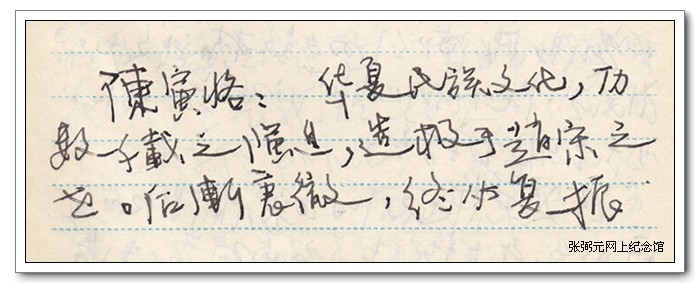 陳寅恪： 华夏民族文化，历
数千載之演进，造极于趙宋之
世。后漸衰微，终必复振
张弼元网上纪念馆